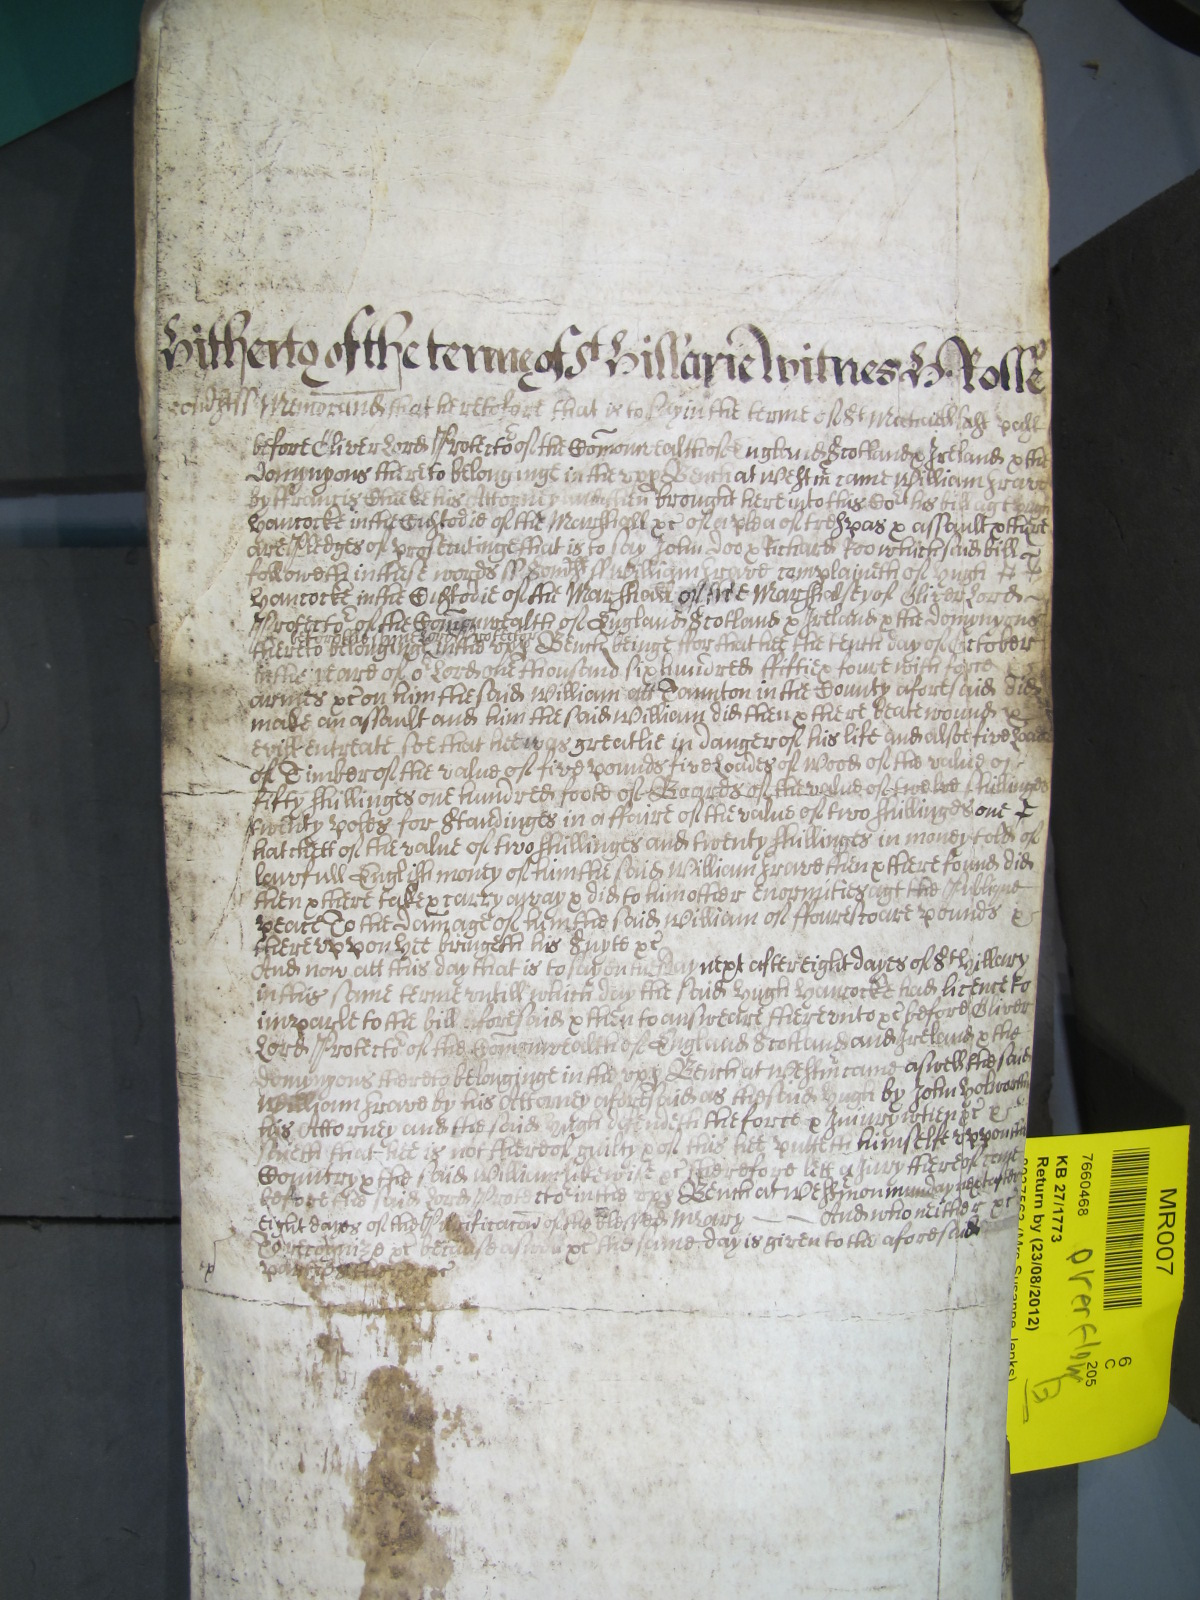 Hitherto of the terme of St Hillarie Witnes H Rolle
Memorand that heretofore that is to say in the terme of St Michaell last past
before Oliver Lord Protector of the Comonwealth of England Scotland & Ireland & the
domynyons thereto belonginge in the upp Bench at Westm came William
by Francis his Attorney and then brought here into this Cort his bill against
Hancocke in the Custodie of the Marshall &c of a plea of trespas & assault & there
are Pledges of prosecutinge that is to say John Doo & Richard Roo which said bill
followeth in these words ss Somst ss William complaineth of Hugh
Hancocke in the Custodie of the Marshall of the Marshalsey of Oliver Lord
Protector of the Comonwealth of England Scotland & Ireland & the domynyons
before the said Lord Protector
thereto belonging in the upp Bench beinge ffor that hee the tenth day of October
in the yeare of or Lord one thousand six hundred fiftie & foure with force &
armes &c on him the said William att Taunton in the County aforesaid did
make an assault and him the said William did then & there beate wound &
evill entreate soe that hee was greatlie in danger of his life and alsoe five Loades
of Timber of the value of five pounds five Loades of Wood of the value of
fifty shillinges one hundred foote of Boards of the value of twelve shillinges
twenty postes for Standinges in a ffaire of the value of two shillinges one
hatchett of the value of two shillinges and twenty shillinges in money told of
lawfull English money of him the said William then & there found did
then & there take & carry away & did to him other enormities agt the Publique
peace To the damage of him the said William of ffourescore pounds &
thereuppon hee bringeth his Suyte &c
And now att this day that is to say on day next after eight dayes of St Hillary
in this same terme untill which day the said Hugh Hancocke had licence to
imparle to the bill aforesaid & then to answeare thereunto &c before Oliver
Lord Protector of the Comonwealth of England Scotland and Ireland & the
domynyons thereto belonginge in the upp Bench at Westm came aswell the said
William by his Attorney aforesaid as the said Hugh by John
his Attorney and the said Hugh defendeth the force & Iniury when &c &
saieth that hee is not thereof guilty & of this hee putteth himselfe uppon the
Country & the said William likewise &c Therefore lett a Jury thereof come
before the said Lord Protector in the upp Bench at Westm on munday next after
eight dayes of the Purificacon of the blessed Mary And who neither &c
To recognize &c because aswell &c the same day is given to the aforesaid
parties there &c
MR007
6
C
205
7660468
KB 27/1773
Return by (23/08/2012)
overflow